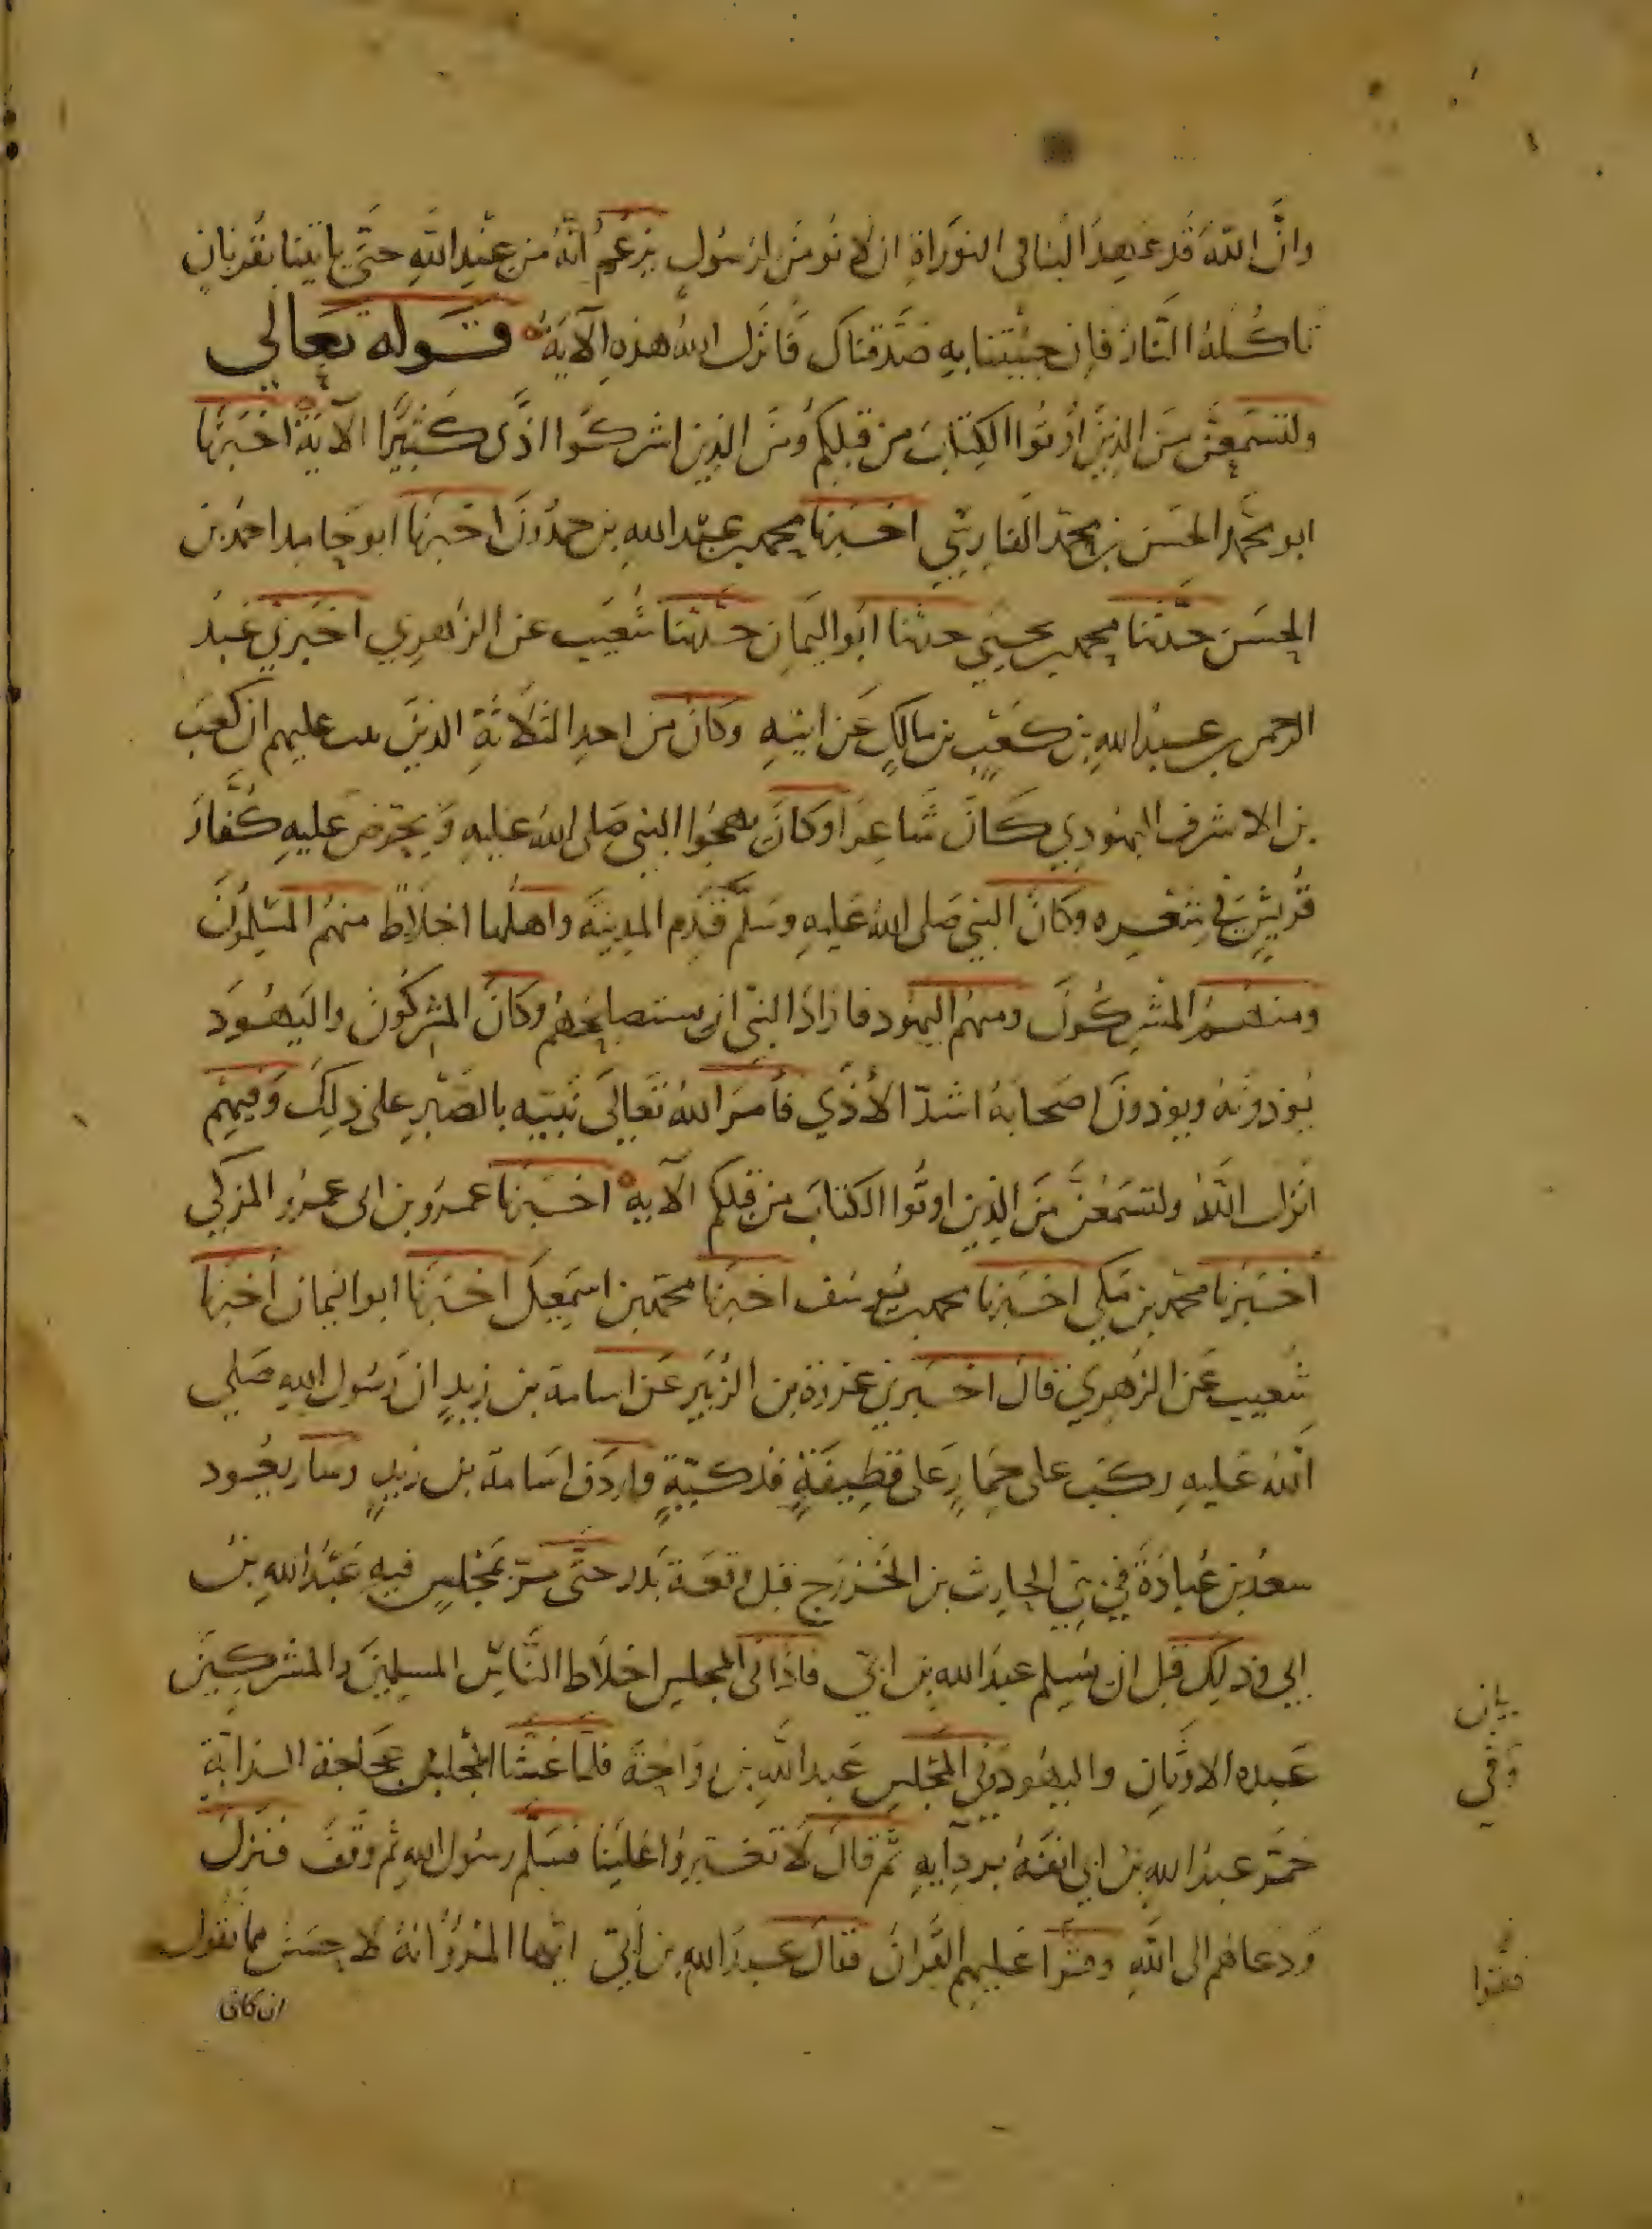 وانَّ اللّهَ قَد عَهِدَ الَينا في التورَاةِ ان لا نُومنَ لرسُولٍ يزعُمُ انَّهُ من عنْدِ اللَّهِ حتَّى ياتينا بقُربانٍ
تاكُلهُ النَّارُ فاِن جيْتنا بهِ صَدَّقناكَ فَانزَل اللهُ هذهِ الآيَةُ قـــولهُ تعَالي
ولتسمَعنَّ منَ الذينَ اُوتُوا الكِتابَ من قبلِكُم وَمنَ الذين اشركُوا اذًى كَثيرًا الآيَة اخبَرنَا
ابو محَّمد الحسَن بن محمّد الفَارِسّي اخبرنا محمد بن عبْد اللهِ بن حمدُونَ اخبَرنا ابو حَامد احمَد بن
الحسَن حدّثنا محمد بن يحيَي حدثنا ابَو اليَمان حدّثنا شُعيَب عن الزهرِي اخبَرني عَبدُ
الرحمن بن عبدُ اللهِ بن كعْبِ بن مالكٍ عَن ابيْهِ وكانَ من احدِ الثلاثةِ الذينَ تيب عليهم ان كعَبَ
بن الاشرف اليهُودِي كَانَ شَاعِرَا وكانَ يهجُوا النبي صَلى اللهُ عَليهِ وَيحرّض عليهِ كُفَّارَ
قُريشٍ في شعْره وكانَ النبي صَلى اللهُ عَليهِ وسَلّم قَدِم المدِينَة واهلُها اخلاطٌ منهُم المسْلِمُونَ
ومنهُمُ المُشرِكُونَ ومنهُم اليَهُود فارَادَ النبّي ان يستصلِحَهُم وكانَ المشركُونَ واليَهُود
يُوذوُنهُ ويوذونَ اصحابهُ اشدّ الأذَي فأمَر اللهُ تعَالَي نبّيه بالصَّبْرِ على ذلِكَ وَفيهِم
انزلَ اللهُ ولتسمَعُنَّ منَ الذين اوتُوا الكتابَ من قبلِكم الآية اخبَرنا عمرَو بن ابى عمرو المزكي
أخبَرنا محمّد بن مَكي اخبَرنا محمد بن يُوسُف اخبرنا محمّد بن اسمَعِيلَ اخبَرنا ابو اليَمان اخبَرنا
شُعيب عَن الزهرِي قالَ اخبَرني عروَة بن الزُبَير عَن اسامة بن زيدٍ ان رَسُول اللهِ صَلي
اللهُ عَليهِ ركبَ على حِمَارٍ عَلى قطِيفَةٍ فدكيّةٍ واردَف اسَامة بن زيدٍ وسَار يعُود
سعدُ بن عُبادَةَ في بني الحارِث بن الخَزرَج قبل وقعَة بَدر حتَّى مرّ بمجْلِسٍ فيهِ عَبْدُ اللهِ بن
ابي وذلِكَ قبل ان يُسِلم عبدَ الله بن ابيّ فاذا في المجلسِ اخلاَط النَّاسِ المسلِمينَ والمشركِينَ
عَبده الاوثانِ واليهُود وَفي المجْلِسِ عَبد اللَّهِ بن رَواحَةَ فلمَّا غشَا المجْلِسَ عجاجة الدابّة
خمَّر عبدُ اللهِ بن ابي انفَهُ بردآيهِ ثم قالَ لاَ تغبّروُا عَلينَا فسَلّم رسُول اللهِ ثم وقفَ فنزلَ
وَدعاهم الى اللهِ وقرَا عَليهِم القُرانَ فقالَ عبدَ اللهِ بن أبيّ ايُّها المرْؤُ انهُ لا احسَن مما تقُول
ان كان
بيان
وَفي
فقرا